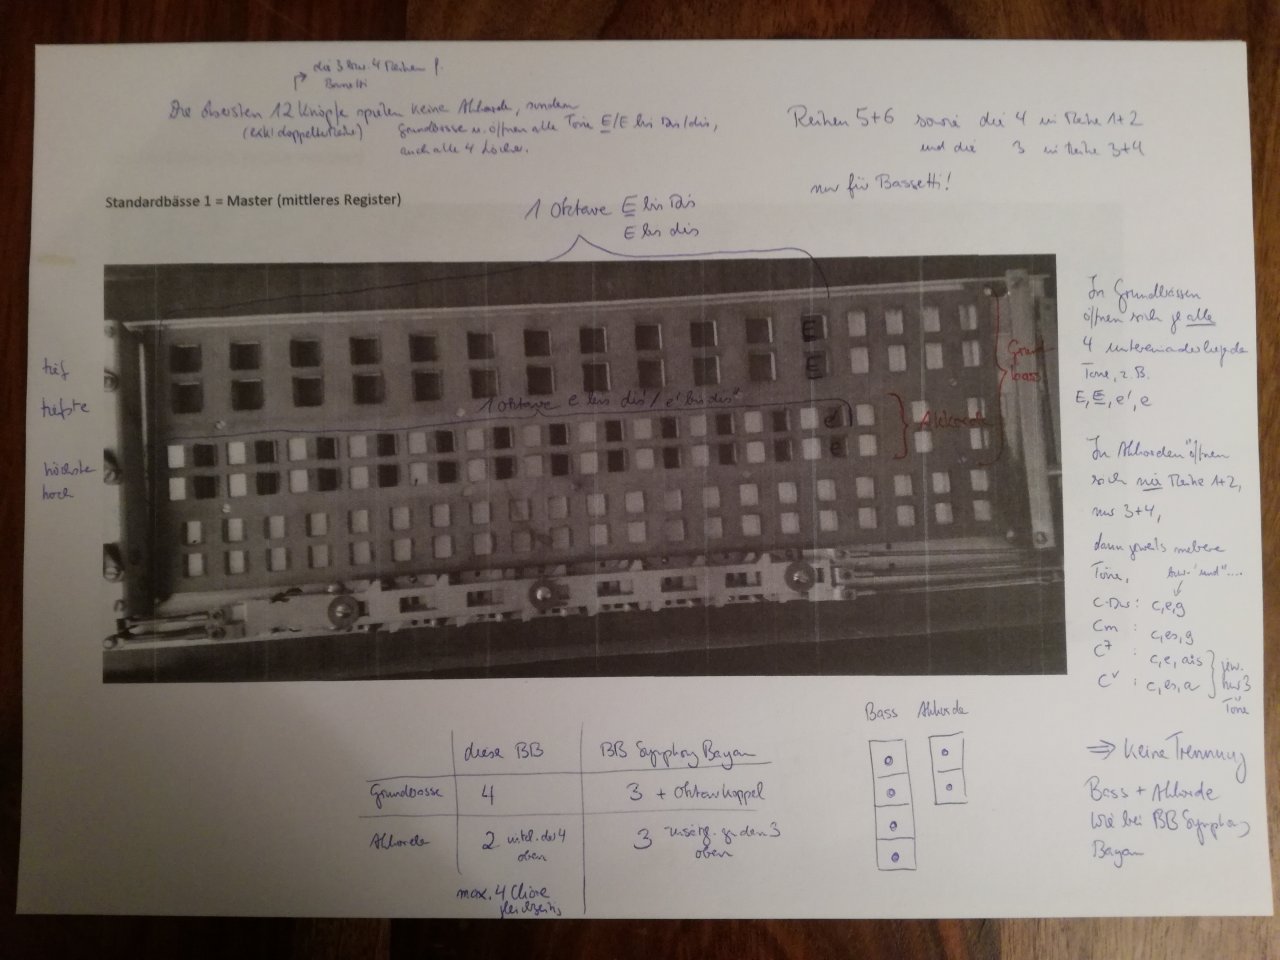 die 3 bzw. 4 Reihen f.
Die obersten 12 Knöpfe spielen keine Akkorde, sondern
(exkl doppelte Reihe)
Grundbässe u. öffnen alle Töne E/E bis Dis/dis,
auch alle 4 Löcher.
Reihen 5+6 sowie die 4 in Reihe 1+2
und die 3 in Reihe 3+4
nur für Bassetti!
Standardbässe 1 = Master (mittleres Register)
1 Oktave E bis Dis
E bis dis
tief
tiefste
höchste
hoch
E
E
1 Oktave e bis dis'/e' bis dis"
e'
e
Grund
bass
Akkorde
In Grundbässen
öffnen sich je alle
4 untereinanderliegende
Töne, z.B.
E, E, e', e
In Akkorden öffnen
sich nie Reihe 1+2,
nur 3+4,
dann jeweils mehrere
Töne, bzw. ' und "....
C-Dur: c,e,g
Cm : c,es,g
C7 : c,e,ais
Cv : c,es,a
jew.
nur 3
Töne
⇒ Keine Trennung
Bass + Akkorde
wie bei BB Symphony
Bayan
diese BB
BB Symphony Bayan
Grundbässe
4
3 + Oktavkoppel
Akkorde
2 mitbe. der 4
oben
3 zusätzl. zu den 3
oben
max. 4 Chöre
gleichzeitig
Bass
Akkorde